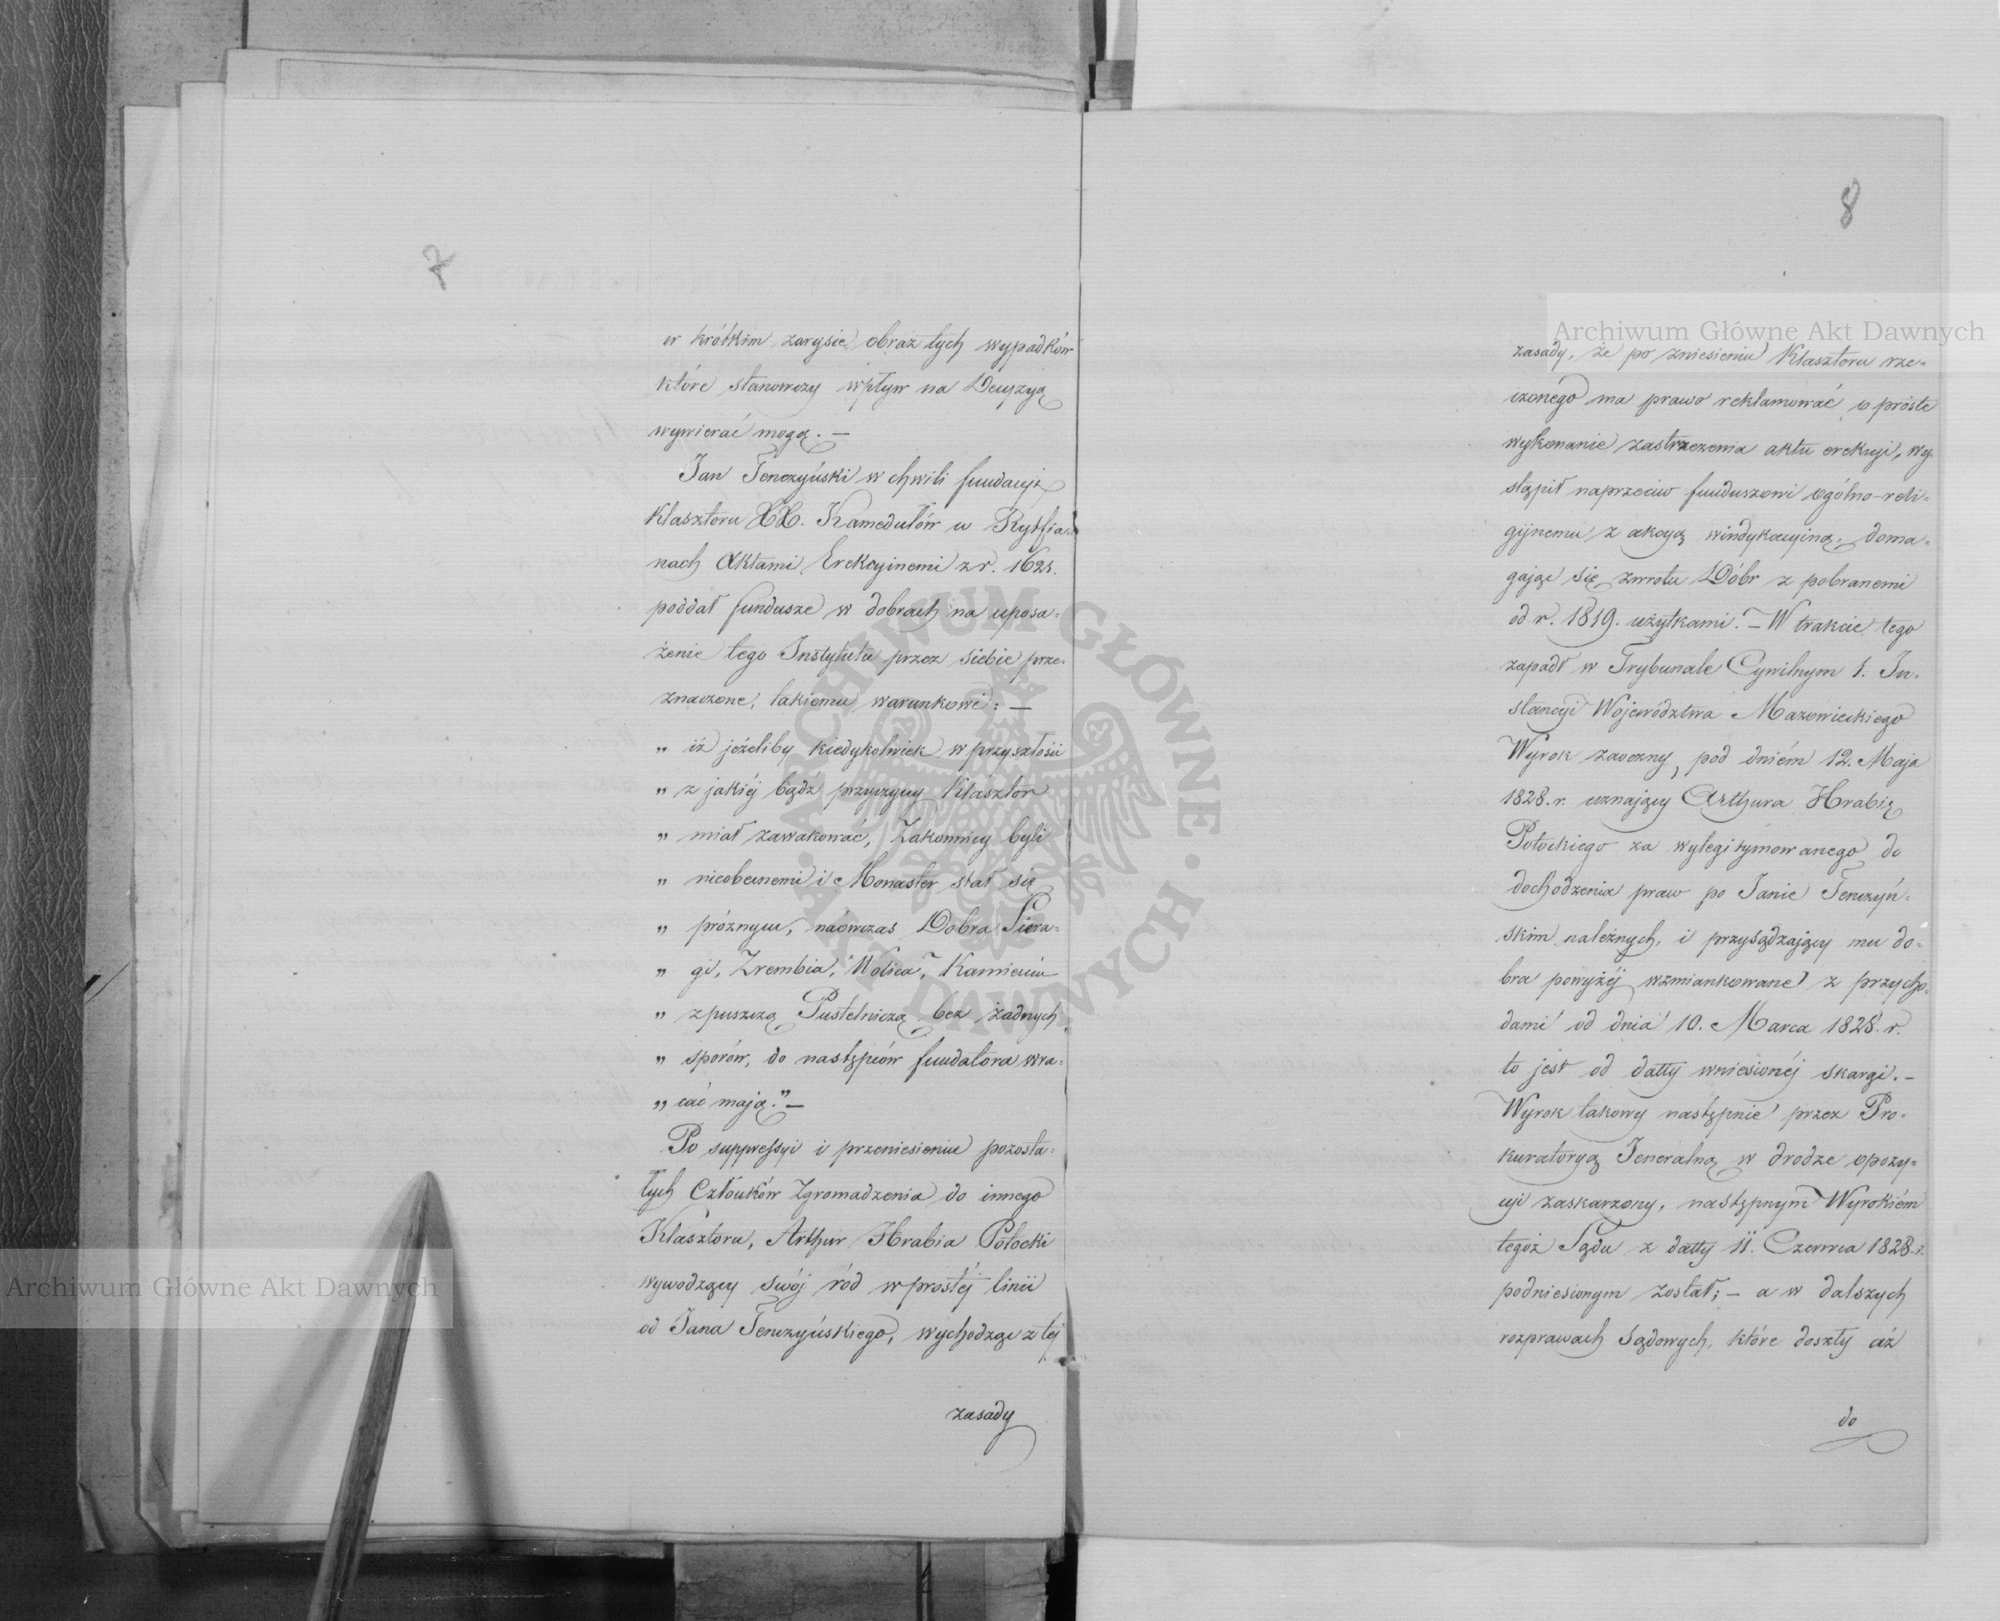 7
w krótkim zarysie obraz tych wypadków
które stanowczy wpływ na Decyzyą
wywierać mogą. —
Jan Tenczyński w chwili fundacyi
Klasztoru XX. Kamedułów w Rytfia-
nach Aktami Erekcyinemi z r. 1625.
poddał fundusze w dobrach na uposa-
żenie tego Instytutu przez siebie prze-
znaczone, takiemu warunkowi: —
„ iż jeżeliby kiedykolwiek w przyszłości
„ z jakiéj bądź przyczyny Klasztor
„ miał zawakować, Zakonnicy byli
„ nieobecnemi i Monaster stał się
„ próżnym, naówczas Dobra Siera-
„ gi, Zrembia, Wolica, Kamieniec
„ z puszczą Pustelniczą bez żadnych
„ sporów, do następców fundatora wra-
„ cać mają." —
Po suppressyi i przeniesieniu pozosta-
łych Członków Zgromadzenia do innego
Klasztoru, Arthur Hrabia Potocki
wywodzący swój ród w prostéj linii
od Jana Tenczyńskiego, wychodząc z téj
zasady
8
zasady, że po zniesieniu Klasztoru rze-
czonego ma prawo reklamować o proste
wykonanie zastrzeżenia aktu erekcyi, wy-
stąpił naprzeciw funduszowi ogólno-reli-
gijnemu z akcyą windykacyiną, doma-
gając się zwrotu Dóbr z pobranemi
od r. 1819. użytkami. — W trakcie tego
zapadł w Trybunale Cywilnym 1. In-
stancyi Województwa Mazowieckiego
Wyrok zaoczny, pod dniem 12. Maja
1828. r. uznający Arthura Hrabię
Potockiego za wylegitymowanego do
dochodzenia praw po Janie Tenczyń-
skim należnych, i przysądzający mu do-
bra powyżéj wzmiankowane z przycho-
dami od dnia 10. Marca 1828. r.
to jest od datty wniesionéj skargi. —
Wyrok takowy następnie przez Pro-
kuratoryą Jeneralną w drodze opozy-
cyi zaskarzony, następnym Wyrokiem
tegoż Sądu z datty 11. Czerwca 1828. r.
podniesionym został; — a w dalszych
rozprawach Sądowych, które doszły aż
do
Archiwum Główne Akt Dawnych
Archiwum Główne Akt Dawnych
ARCHIWUM GŁÓWNE · AKT DAWNYCH ·